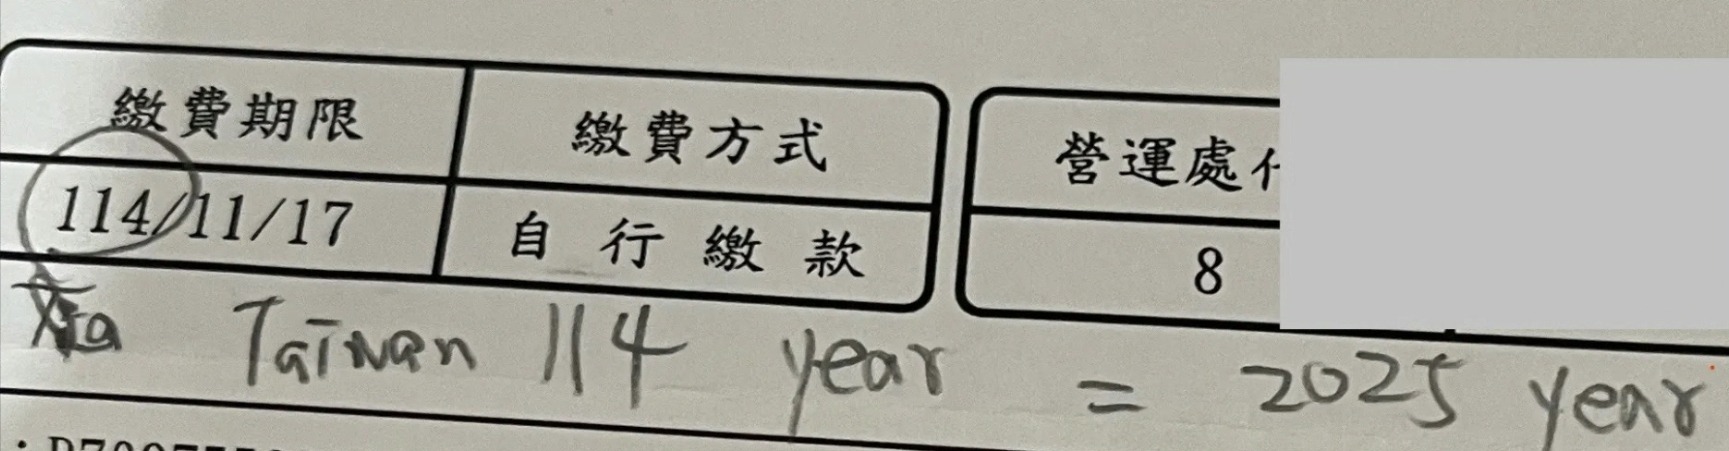 繳費期限 繳費方式 營運處
114/11/17 自行繳款 8
Taiwan 114 year = 2025 year